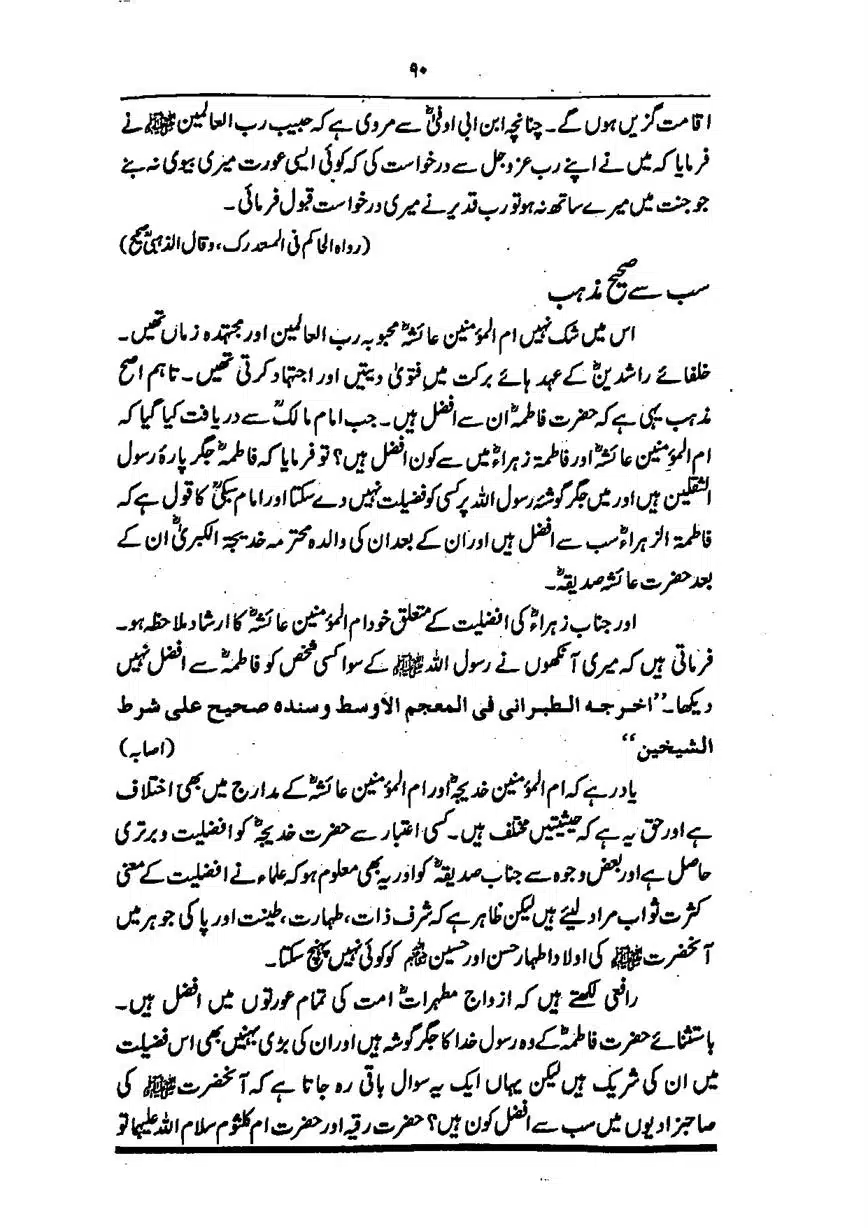 ۹۰
اقامت گزیں ہوں گے۔ چنانچہ ابن ابی اوفیٰؓ سے مروی ہے کہ حبیب رب العالمین ﷺ نے
فرمایا کہ میں نے اپنے رب عزوجل سے درخواست کی کہ کوئی ایسی عورت میری بیوی نہ بنے
جو جنت میں میرے ساتھ نہ ہو تو رب قدیر نے میری درخواست قبول فرمائی۔
(رواہ الحاکم فی المستدرک، وقال الذہبیؒ صحیح)
سب سے صحیح مذہب
اس میں شک نہیں ام المؤمنین عائشہؓ محبوبہ رب العالمین اور مجتہدہ زماں تھیں۔
خلفائے راشدینؓ کے عہد ہائے برکت میں فتویٰ دیتیں اور اجتہاد کرتی تھیں۔ تاہم اصح
مذہب یہی ہے کہ حضرت فاطمہؓ ان سے افضل ہیں۔ جب امام مالکؒ سے دریافت کیا گیا کہ
ام المؤمنین عائشہؓ اور فاطمۃ زہراءؓ میں سے کون افضل ہیں؟ تو فرمایا کہ فاطمہؓ جگر پارۂ رسول
الثقلین ہیں اور میں جگر گوشۂ رسول اللہ پر کسی کو فضیلت نہیں دے سکتا اور امام سبکیؒ کا قول ہے کہ
فاطمۃ الزہراءؓ سب سے افضل ہیں اور ان کے بعد ان کی والدہ محترمہ خدیجۃ الکبریٰؓ ان کے
بعد حضرت عائشہ صدیقہؓ۔
اور جناب زہراءؓ کی افضلیت کے متعلق خود ام المؤمنین عائشہؓ کا ارشاد ملاحظہ ہو۔
فرماتی ہیں کہ میری آنکھوں نے رسول اللہ ﷺ کے سوا کسی شخص کو فاطمہؓ سے افضل نہیں
دیکھا۔ ’’اخرجه الطبرانی فی المعجم الأوسط وسنده صحیح علی شرط
الشیخین‘‘ (اصابہ)
یاد رہے کہ ام المؤمنین خدیجہؓ اور ام المؤمنین عائشہؓ کے مدارج میں بھی اختلاف
ہے اور حق یہ ہے کہ حیثیتیں مختلف ہیں۔ کسی اعتبار سے حضرت خدیجہؓ کو افضلیت و برتری
حاصل ہے اور بعض وجوہ سے جناب صدیقہؓ کو اور یہ بھی معلوم ہو کہ علماء نے افضلیت کے معنی
کثرت ثواب مراد لیئے ہیں لیکن ظاہر ہے کہ شرف ذات، طہارت، طینت اور پاکی جوہر میں
آنحضرت ﷺ کی اولاد اطہار حسن اور حسینؓ کو کوئی نہیں پہنچ سکتا۔
رافعی لکھتے ہیں کہ ازواج مطہراتؓ امت کی تمام عورتوں میں افضل ہیں۔
باستثنائے حضرت فاطمہؓ کے وہ رسول خدا کا جگر گوشہ ہیں اور ان کی بڑی بہنیں بھی اس فضیلت
میں ان کی شریک ہیں لیکن یہاں ایک یہ سوال باقی رہ جاتا ہے کہ آنحضرت ﷺ کی
صاحبزادیوں میں سب سے افضل کون ہیں؟ حضرت رقیہ اور حضرت ام کلثوم سلام اللہ علیہا تو